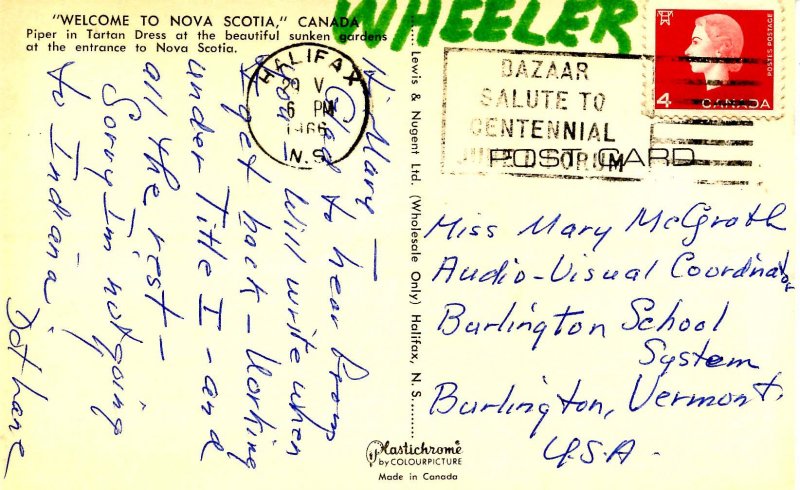 "WELCOME TO NOVA SCOTIA," CANADA
Piper in Tartan Dress at the beautiful sunken gardens
at the entrance to Nova Scotia.
WHEELER
HALIFAX
20 V
6 PM
1966
N.S.
BAZAAR
SALUTE TO
CENTENNIAL
FORUM
4
CANADA
POSTES POSTAGE
POST CARD
Hi Mary —
Glad to hear from
you — Will write when
I get back — Working
under Title I - and
all the rest —
Sorry I'm not going
to Indiana
Miss Mary McGrath
Audio-Visual Coordinator
Burlington School
System
Burlington, Vermont.
U.S.A.
Lewis & Nugent Ltd. (Wholesale Only) Halifax, N. S.
Plastichrome
by COLOURPICTURE
Made in Canada